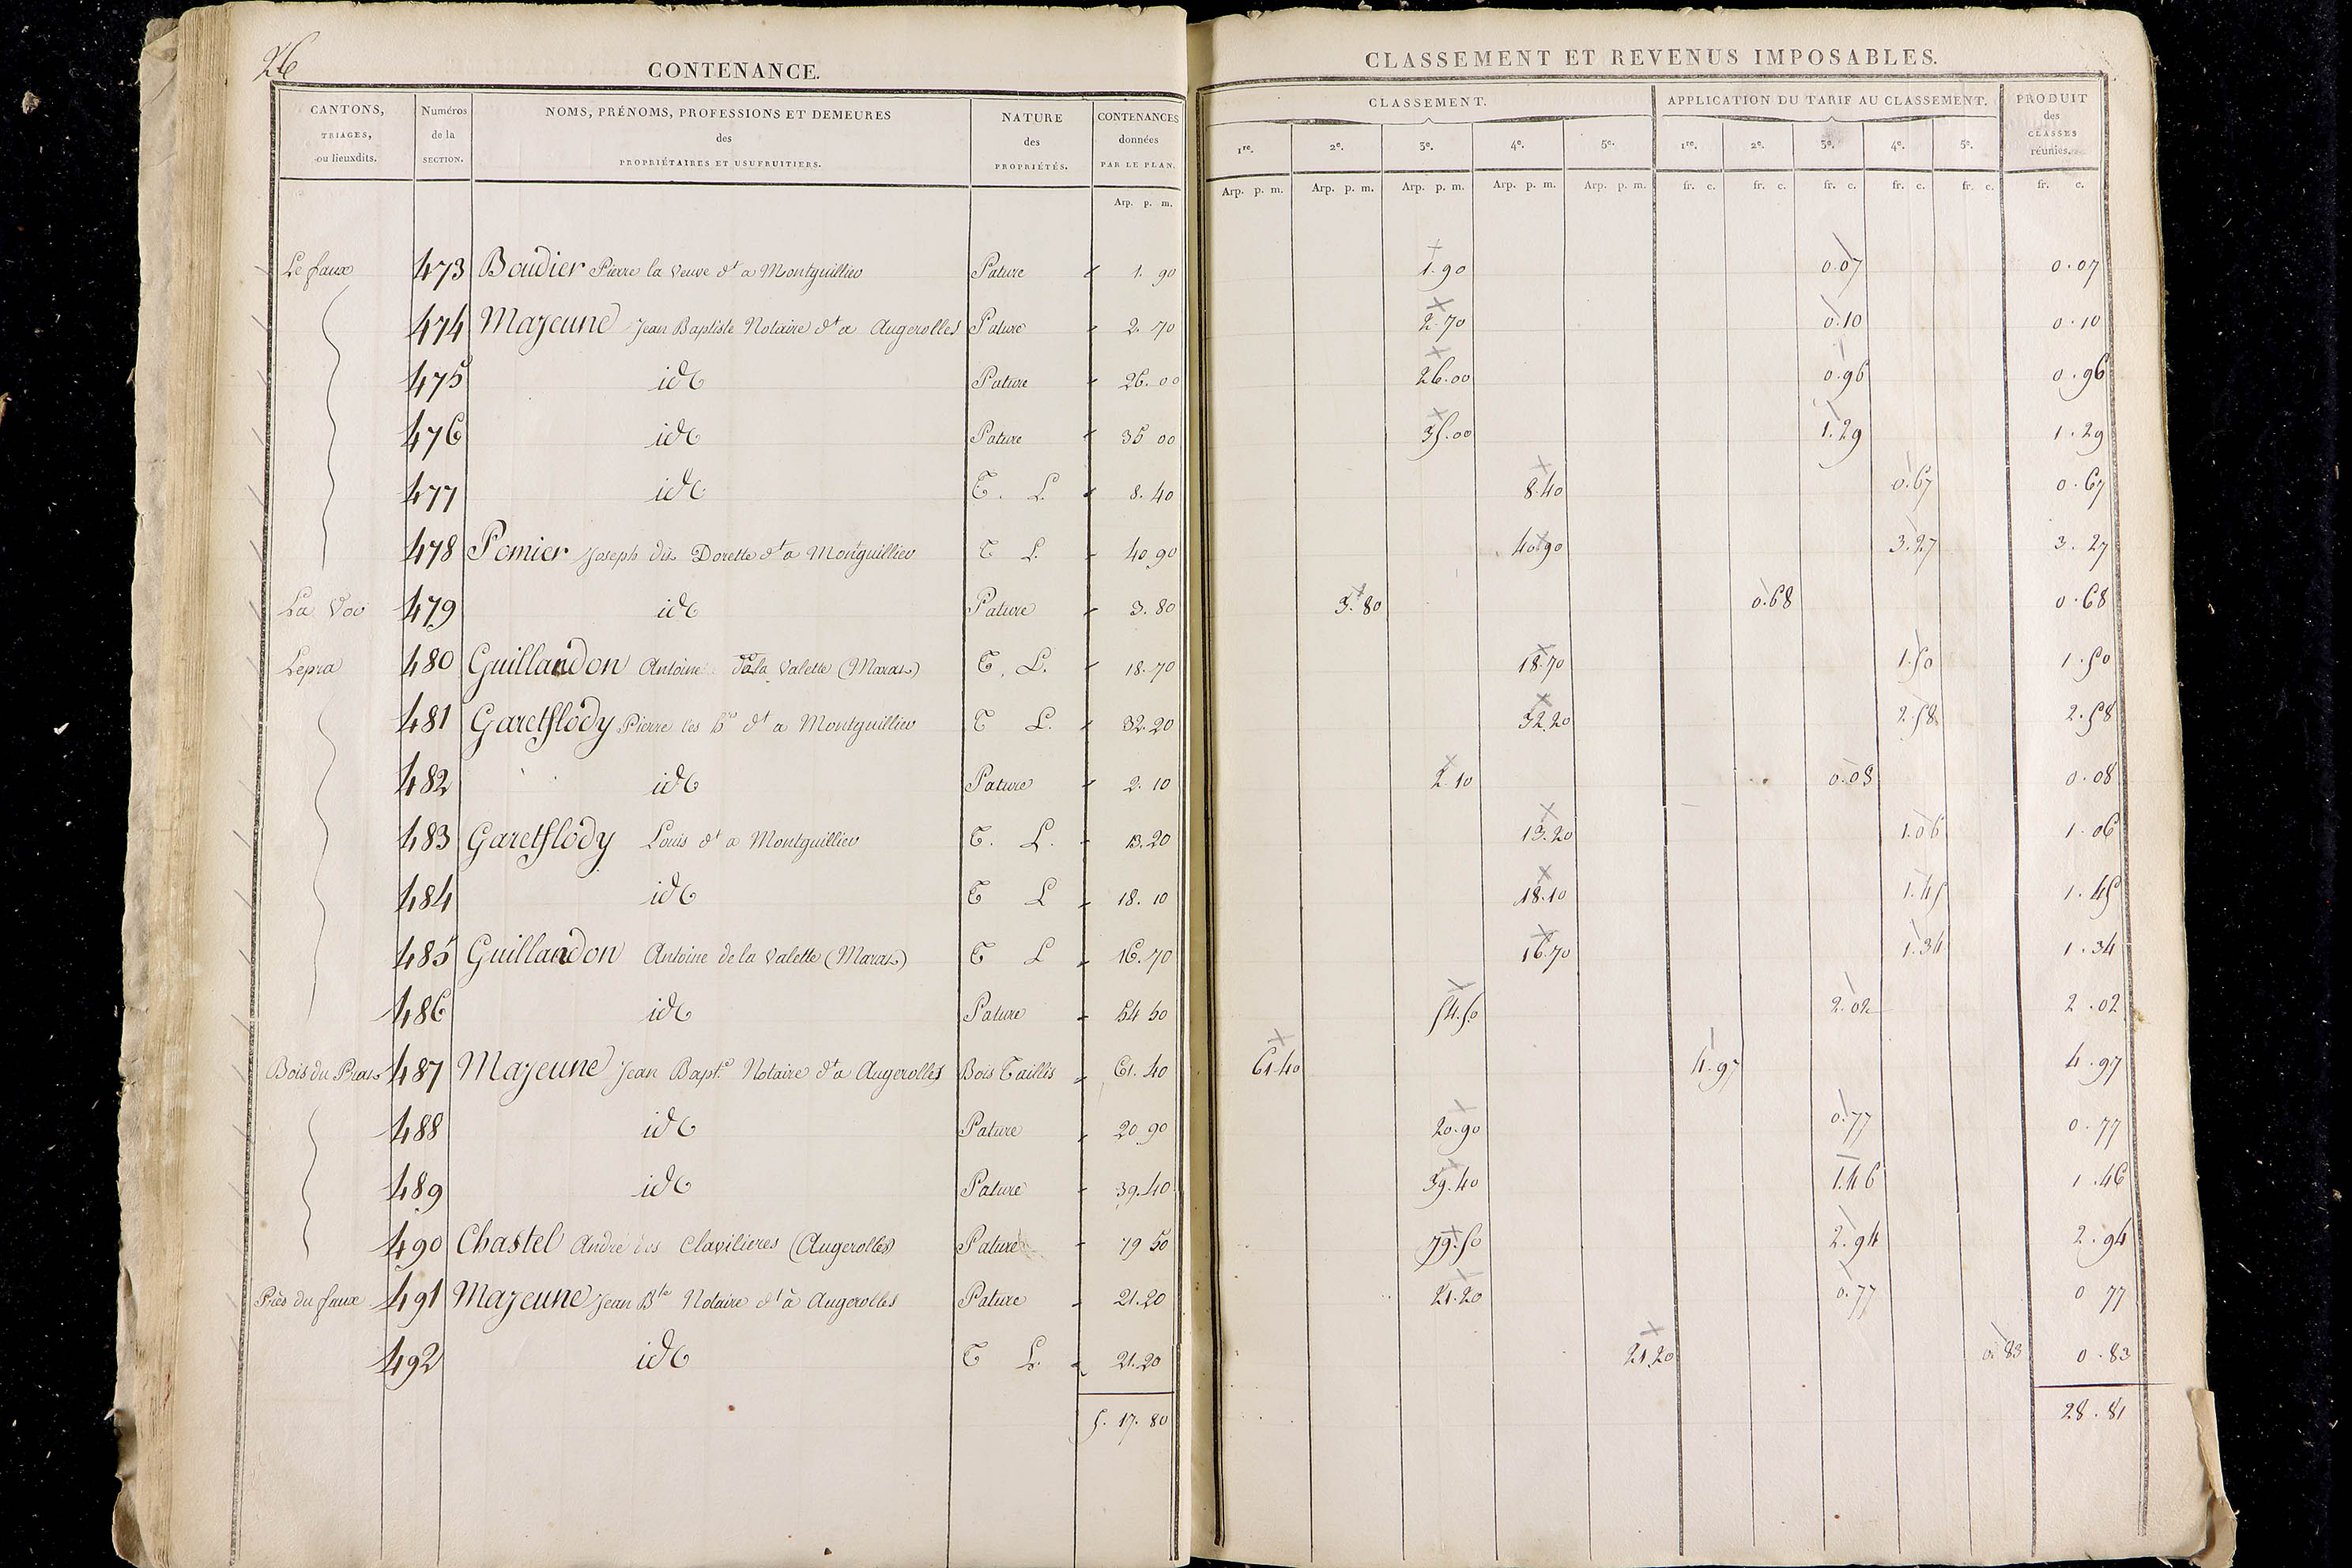 26
CONTENANCE.
CANTONS, TRIAGES, ou lieuxdits.
Numéros de la SECTION.
NOMS, PRÉNOMS, PROFESSIONS ET DEMEURES des PROPRIÉTAIRES ET USUFRUITIERS.
NATURE des PROPRIÉTÉS.
CONTENANCES données PAR LE PLAN.
Arp. p. m.
CLASSEMENT ET REVENUS IMPOSABLES.
CLASSEMENT.
APPLICATION DU TARIF AU CLASSEMENT.
PRODUIT des CLASSES réunies.
1re. 2e. 3e. 4e. 5e. 1re. 2e. 3e. 4e. 5e.
Arp. p. m. Arp. p. m. Arp. p. m. Arp. p. m. Arp. p. m. fr. c. fr. c. fr. c. fr. c. fr. c. fr. c.
Le faux 473 Boudier Pierre la Veuve dt a Montguillier Pature 1. 90 1.90 0.07 0.07
474 Majeune Jean Baptiste Notaire dt a Augerolles Pature 2. 70 2.70 0.10 0.10
475 id Pature 26. 00 26.00 0.96 0.96
476 id Pature 35 00 35.00 1.29 1.29
477 id T. L 8. 40 8.40 0.67 0.67
478 Pomier Joseph dit Dorette dt a Montguillier T L. 40 90 40.90 3.27 3.27
479 id Pature 3. 80 3.80 0.68 0.68
Lepra 480 Guillandon Antoine la Valette T. L. 18.70 18.70 1.50 1.50
481 Garetflody Pierre les dt a Montguillier T L. 32.20 32.20 2.58 2.58
482 id Pature 2. 10 2.10 0.08 0.08
483 Garetflody Louis dt a Montguillier T. L. 13.20 13.20 1.06 1.06
484 id T L 18. 10 18.10 1.45 1.45
485 Guillandon Antoine de la Valette T L 16.70 16.70 1.34 1.34
486 id Pature 54 50 54.50 2.02 2.02
Bois du 487 Majeune Jean Bapt.e Notaire dt a Augerolles Bois Taillis 61. 40 61.40 4.97 4.97
488 id Pature 20 90 20.90 0.77 0.77
489 id Pature 39.40 39.40 1.46 1.46
490 Chastel André des Clavilieres (Augerolles) Pature 79 50 79.50 2.94 2.94
Près du faux 491 Majeune Jean Bte Notaire dt à Augerolles Pature 21.20 21.20 0.77 0 77
492 id T L. 21.20 21.20 0.83 0.83
5. 17. 80 28.81